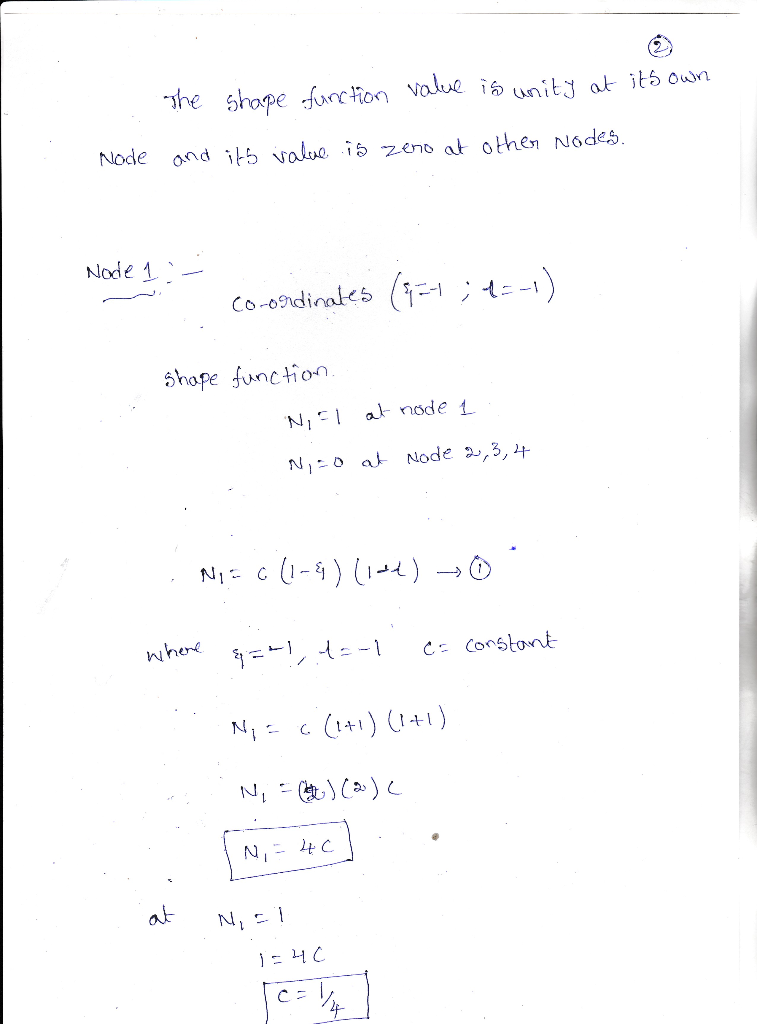 ②
The shape function value is unity at its own
Node and its value is zero at other Nodes.
Node 1 :-
co-ordinates (ξ=-1 ; t=-1)
shape function.
N₁=1 at node 1
N₁=0 at Node 2,3,4
N₁= c (1-ξ) (1-t) → ①
where ξ=-1, t=-1 c= constant
N₁= c (1+1) (1+1)
N₁ = (2)(2)c
N₁= 4c
at N₁=1
1=4c
c= 1/4